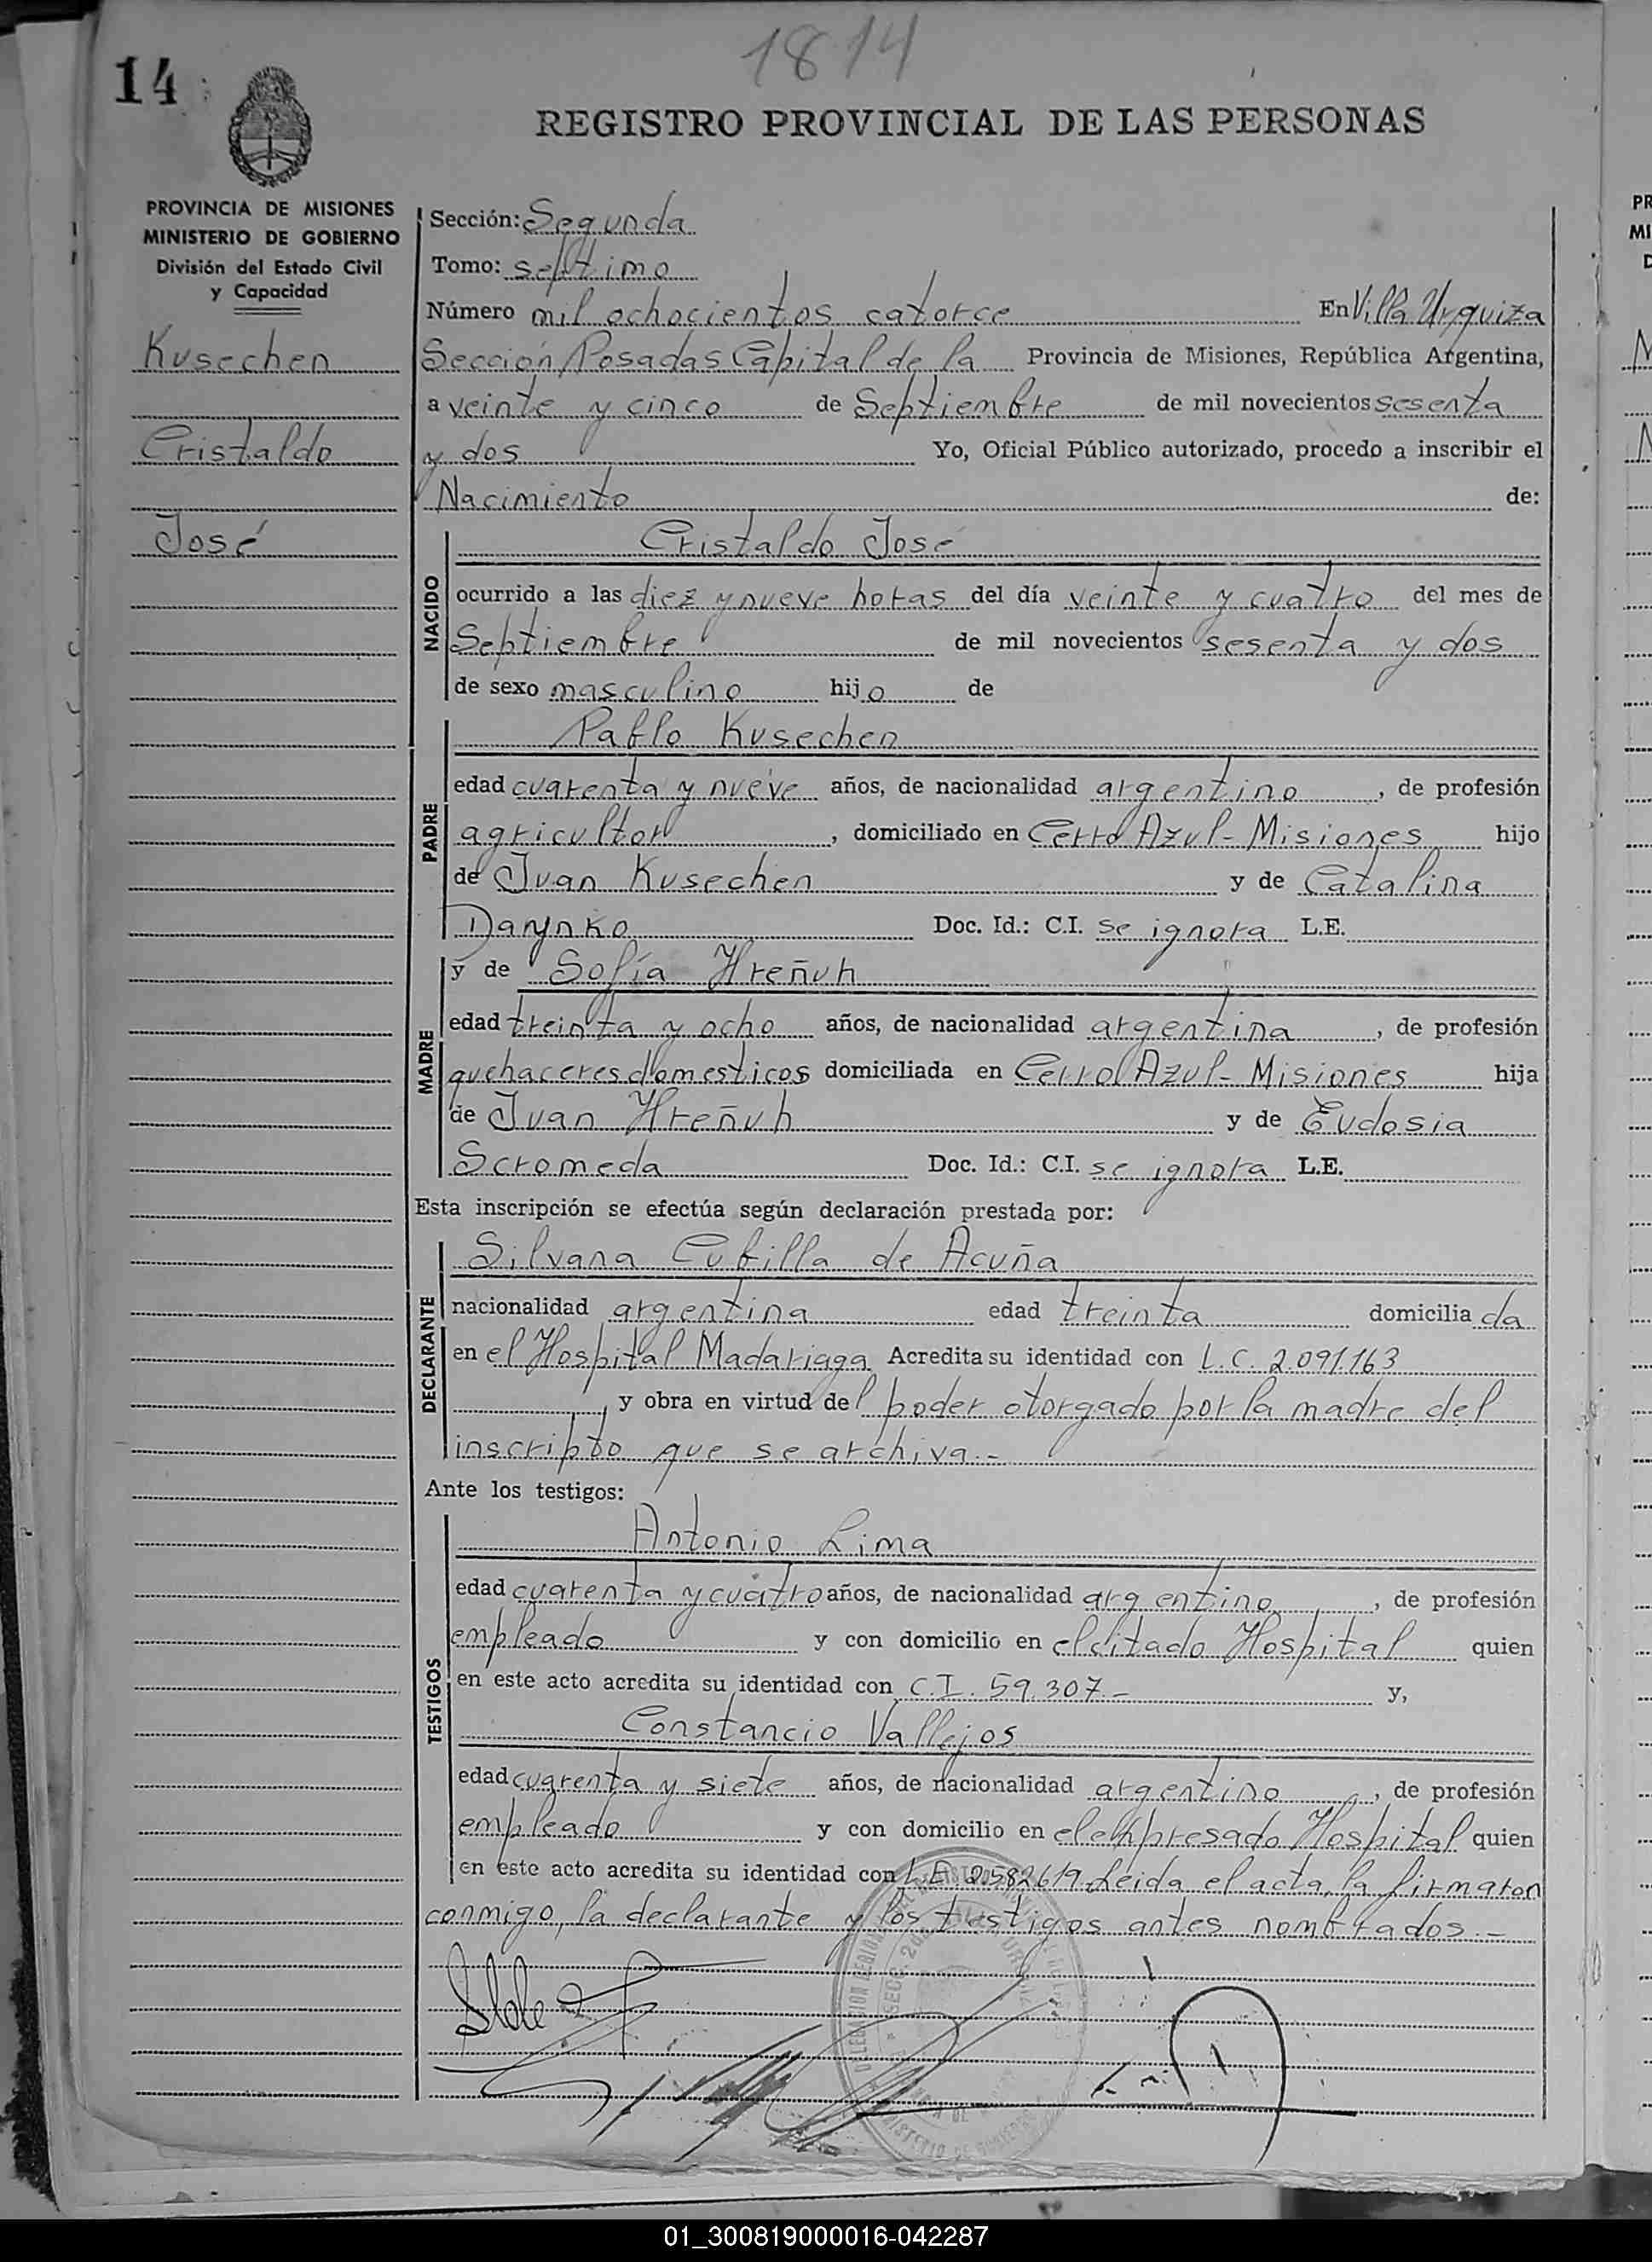 1814
14
REGISTRO PROVINCIAL DE LAS PERSONAS
PROVINCIA DE MISIONES
MINISTERIO DE GOBIERNO
División del Estado Civil
y Capacidad
Kusechen
Cristaldo
José
Sección: Segunda
Tomo: septimo
Número mil ochocientos catorce En Villa Urquiza
Sección Posadas Capital de la Provincia de Misiones, República Argentina,
a veinte y cinco de Septiembre de mil novecientos sesenta
y dos Yo, Oficial Público autorizado, procedo a inscribir el
Nacimiento de:
NACIDO
Cristaldo José
ocurrido a las diez y nueve horas del día veinte y cuatro del mes de
Septiembre de mil novecientos sesenta y dos
de sexo masculino hijo de
PADRE
Pablo Kusechen
edad cuarenta y nueve años, de nacionalidad argentino, de profesión
agricultor, domiciliado en Cerro Azul - Misiones hijo
de Juan Kusechen y de Catalina
Darynko Doc. Id.: C.I. se ignora L.E.
MADRE
y de Sofía Hreñuh
edad treinta y ocho años, de nacionalidad argentina, de profesión
quehaceres domesticos domiciliada en Cerro Azul - Misiones hija
de Juan Hreñuh y de Eudosia
Scromeda Doc. Id.: C.I. se ignora L.E.
Esta inscripción se efectúa según declaración prestada por:
DECLARANTE
Silvana Cubilla de Acuña
nacionalidad argentina edad treinta domiciliada
en el Hospital Madariaga Acredita su identidad con L.C. 2.091.163
y obra en virtud del poder otorgado por la madre del
inscripto que se archiva.-
Ante los testigos:
TESTIGOS
Antonio Lima
edad cuarenta y cuatro años, de nacionalidad argentino, de profesión
empleado y con domicilio en el citado Hospital quien
en este acto acredita su identidad con C.I. 59.307.- y,
Constancio Vallejos
edad cuarenta y siete años, de nacionalidad argentino, de profesión
empleado y con domicilio en el expresado Hospital quien
en este acto acredita su identidad con L.E. 2582619. Leida el acta, la firmaron
conmigo, la declarante y los testigos antes nombrados.-
01_300819000016-042287